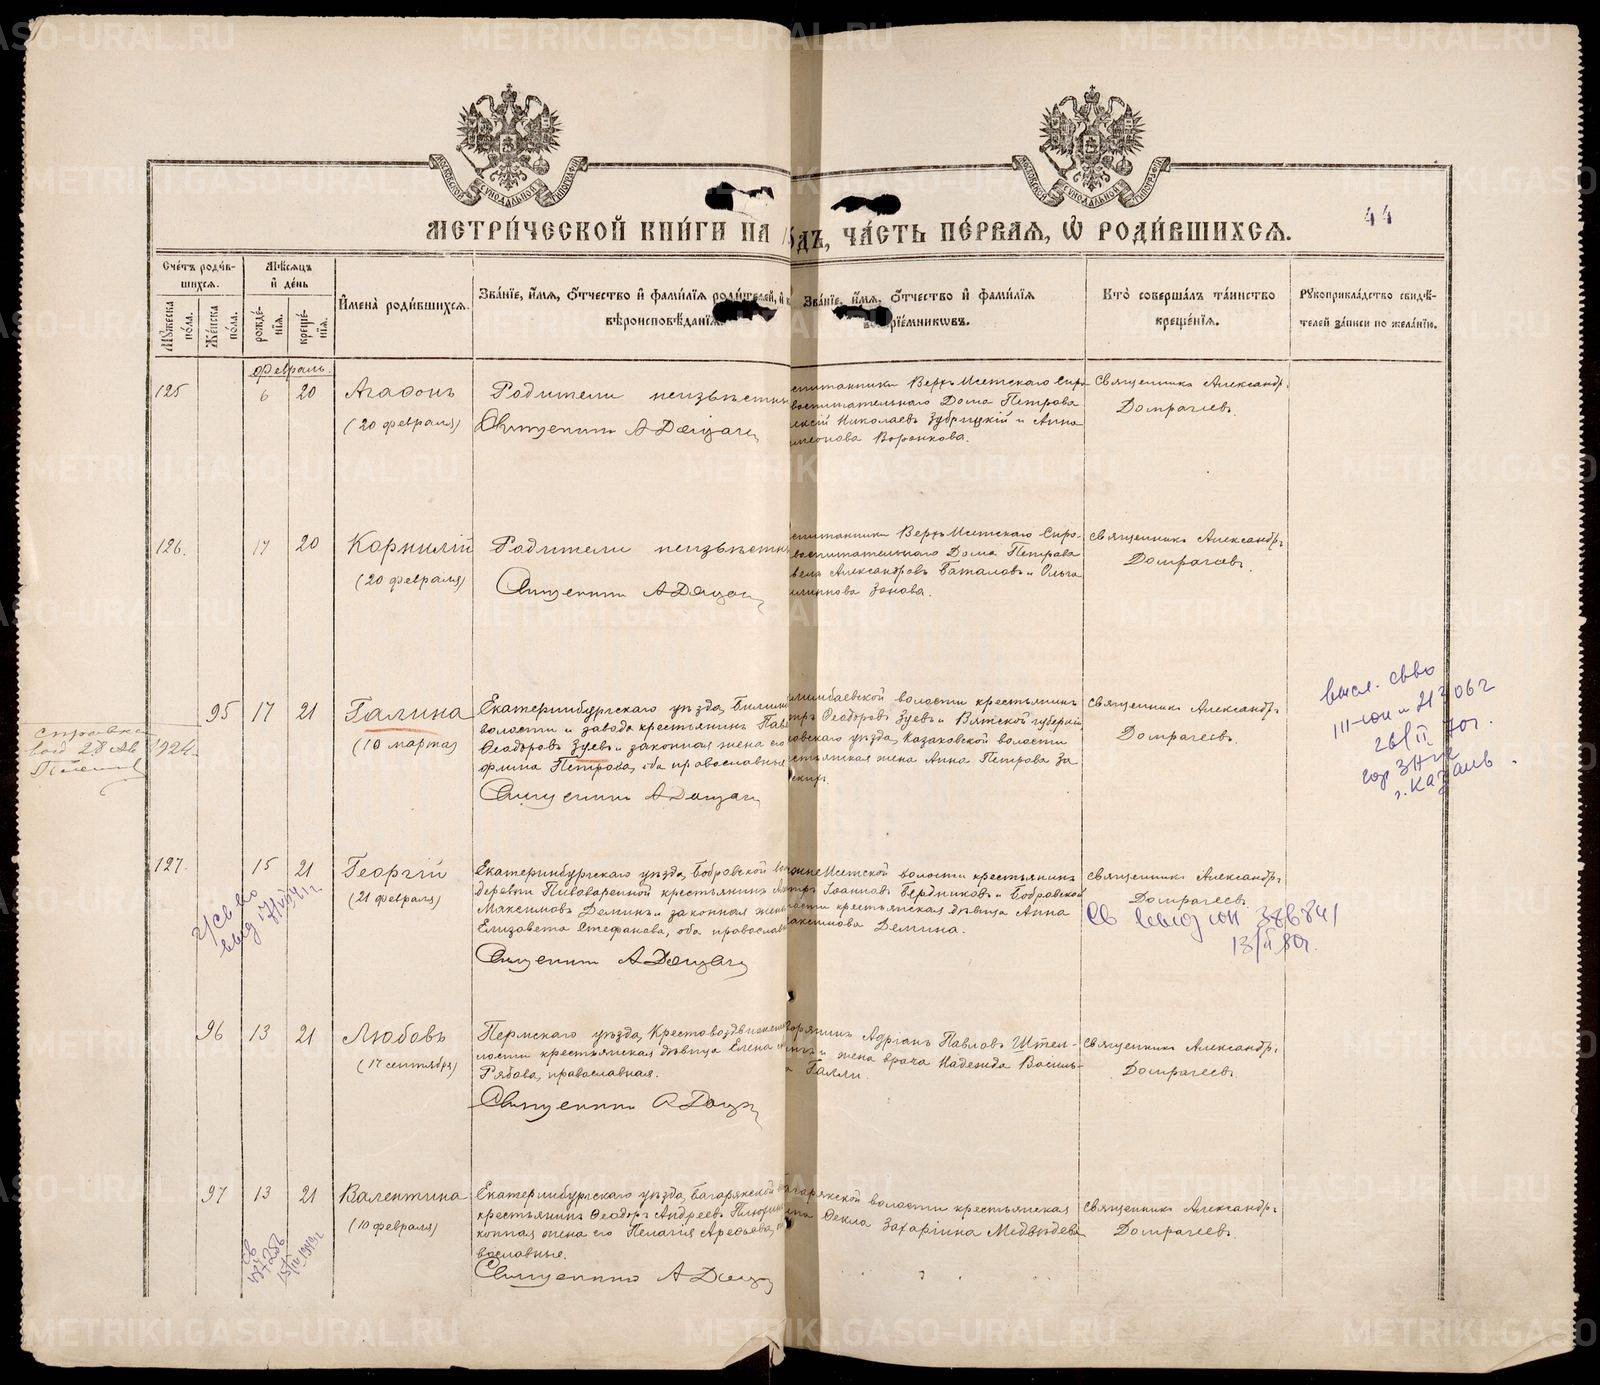 МЕТРИ́ЧЕСКОЙ КНИ́ГИ НА
ДЪ, ЧА́СТЬ ПЕ́РВАЯ, Ѡ РОДИ́ВШИХСЯ.
44
Сче́тъ роди́в-
шихся.
Мѣ́сяцъ
и́ де́нь
И҆мена̀ роди́вшихся.
Зва́нїе, и҆́мя, ѻ҆́тчество и҆ фами́лїя роди́телей, и҆ к
вѣроисповѣ́данїя
Зва́нїе, и҆́мя, ѻ҆́тчество и҆ фами́лїя
рїе́мникѡвъ.
Кто̀ соверша́лъ та́инство
креще́нїя.
Рꙋкоприкла́дство свидѣ́-
телей за́писи по жела́нїю.
Мꙋ́жеска
по́ла.
Же́нска
по́ла.
рожде́-
нїя.
креще́-
нїя.
Февраль.
125 6 20 Агафонъ
(20 февраля)
Родители неизвѣстны
Священникъ А
спитанники Верхъ Исетскаго Сиро
воспитательнаго Дома Петрова
ексій Николаевъ Зубрицкій и Анна
имеонова Воронкова.
Священникъ Александръ
Домрачевъ.
126. 17 20 Корнилій
(20 февраля)
Родители неизвѣстны
Священникъ А
спитанники Верхъ Исетскаго Сиро-
воспитательнаго Дома Петрова
велъ Александровъ Баталовъ и Ольга
илиппова Зонова.
Священникъ Александръ
Домрачевъ.
95 17 21 Галина
(10 марта)
Екатеринбургскаго уѣзда, Билим
волости и завода крестьянинъ Пав
Ѳеодоровъ Зуевъ и законная жена его
фима Петрова, оба православные
Священникъ А
илимбаевской волости крестьянинъ
тръ Ѳеодоровъ Зуевъ и Вятской губерніи
овскаго уѣзда, Казаковской волости
естьянская жена Анна Петрова За
Священникъ Александръ
Домрачевъ.
справка
1924.
высл. св-во
26/II 70г.
г. Казань
127. 15 21 Георгій
(21 февраля)
Екатеринбургскаго уѣзда, Бобровской во
деревни Пивоваренной крестьянинъ
Максимовъ Деминъ и законная жена
Елизавета Стефанова, оба православ
Священникъ А
Исетской волости крестьянинъ
тръ Іоанновъ Бердниковъ и Бобровской
лости крестьянская дѣвица Анна
аксимова Демина.
Священникъ Александръ
Домрачевъ.
13/II 80г.
96 13 21 Любовь
(17 сентября)
Пермскаго уѣзда, Крестовоздвиженской
лости крестьянская дѣвица Елена
Рябова, православная.
Священникъ А
ворянинъ Адріанъ Павловъ Штел-
и жена врача Надежда Василь-
а Галли.
Священникъ Александръ
Домрачевъ.
97 13 21 Валентина
(10 февраля)
Екатеринбургскаго уѣзда, Багарякской
крестьянинъ Ѳеодоръ Андреевъ
конная жена его Пелагія Арефьева,
вославные.
Священникъ А
агарякской волости крестьянская
Ѳекла Захаріина Медвѣдева
Священникъ Александръ
Домрачевъ.
METRIKI.GASO-URAL.RU